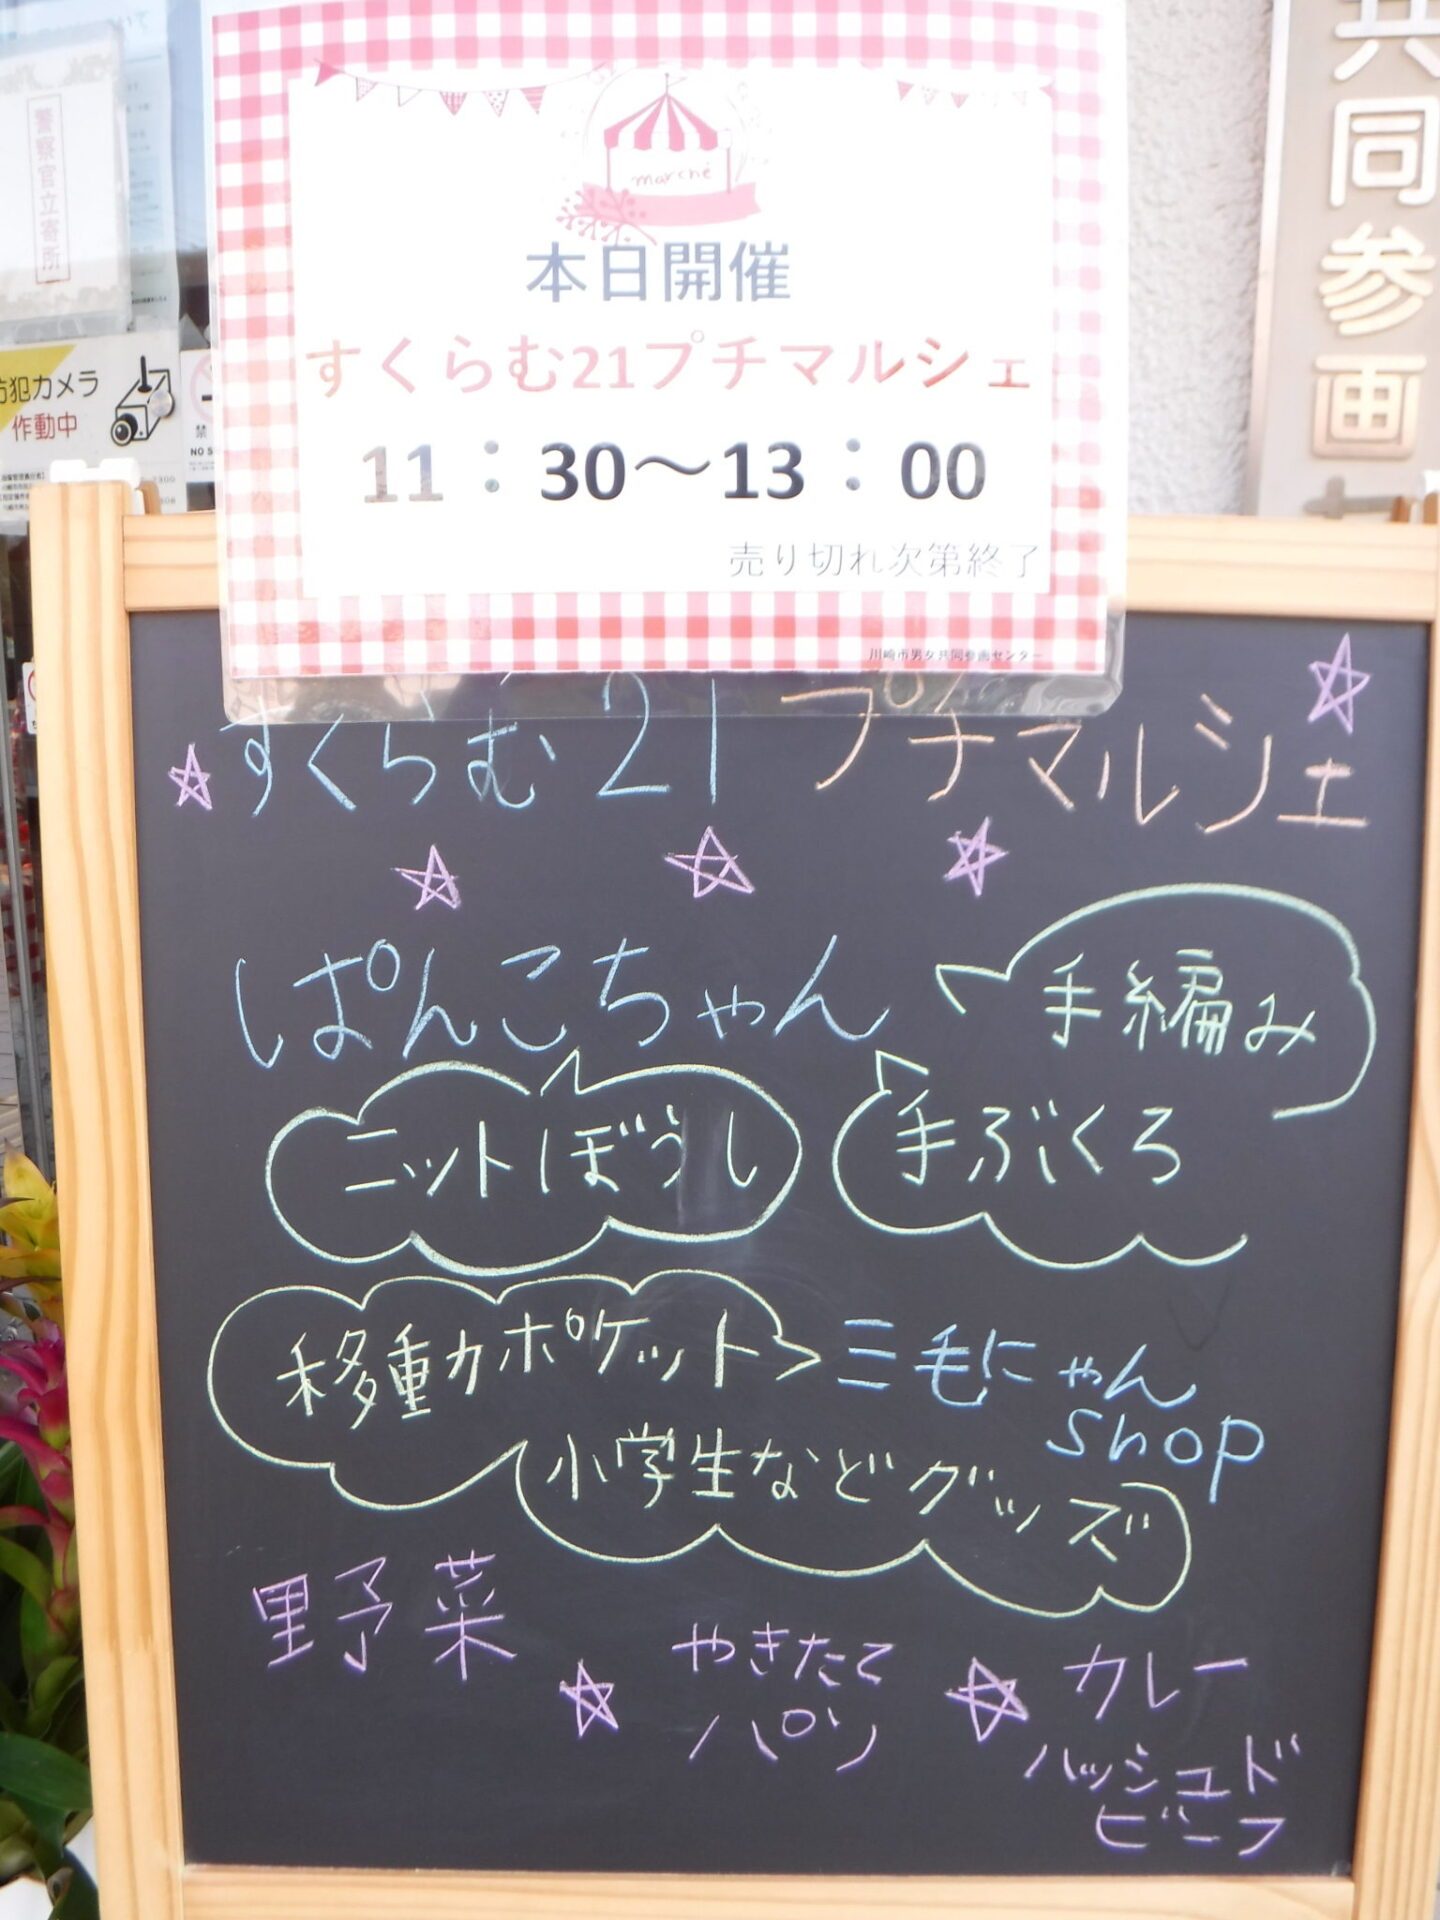 marché
本日開催
すくらむ21プチマルシェ
11：30～13：00
売り切れ次第終了
川崎市男女共同参画センター
すくらむ21プチマルシェ
ぱんこちゃん
手編み
ニットぼうし
手ぶくろ
移動カポケット
三毛にゃん
shop
小学生などグッズ
野菜
やきたて
パン
カレー
ハッシュド
ビーフ
警察官立寄所
防犯カメラ
作動中
禁
共同参画